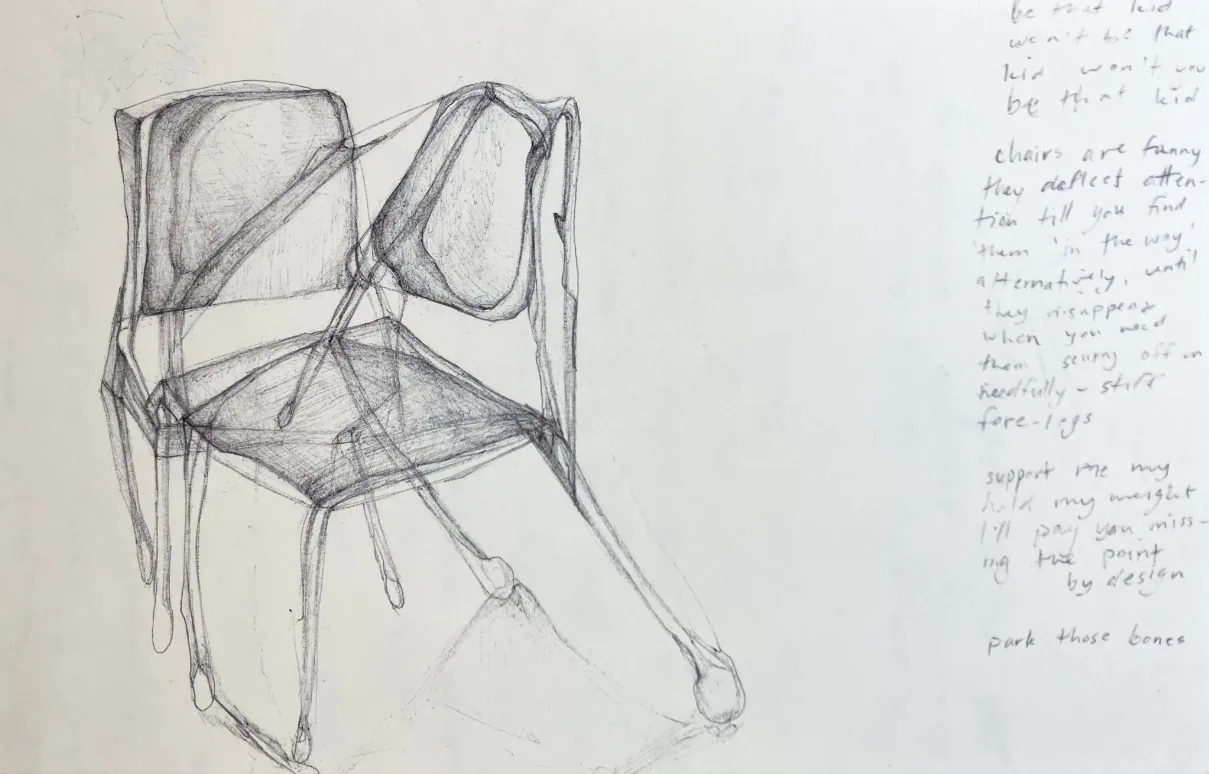 be that kid
won't be that
kid won't you
be that kid
chairs are funny
they deflect atten-
tion till you find
'them 'in the way,'
alternatively, until
they disappear
when you need
them scurry off un
heedfully - stiff
fore-legs
support me my
hold my weight
I'll pay you miss-
ing the point
by design
park those bones